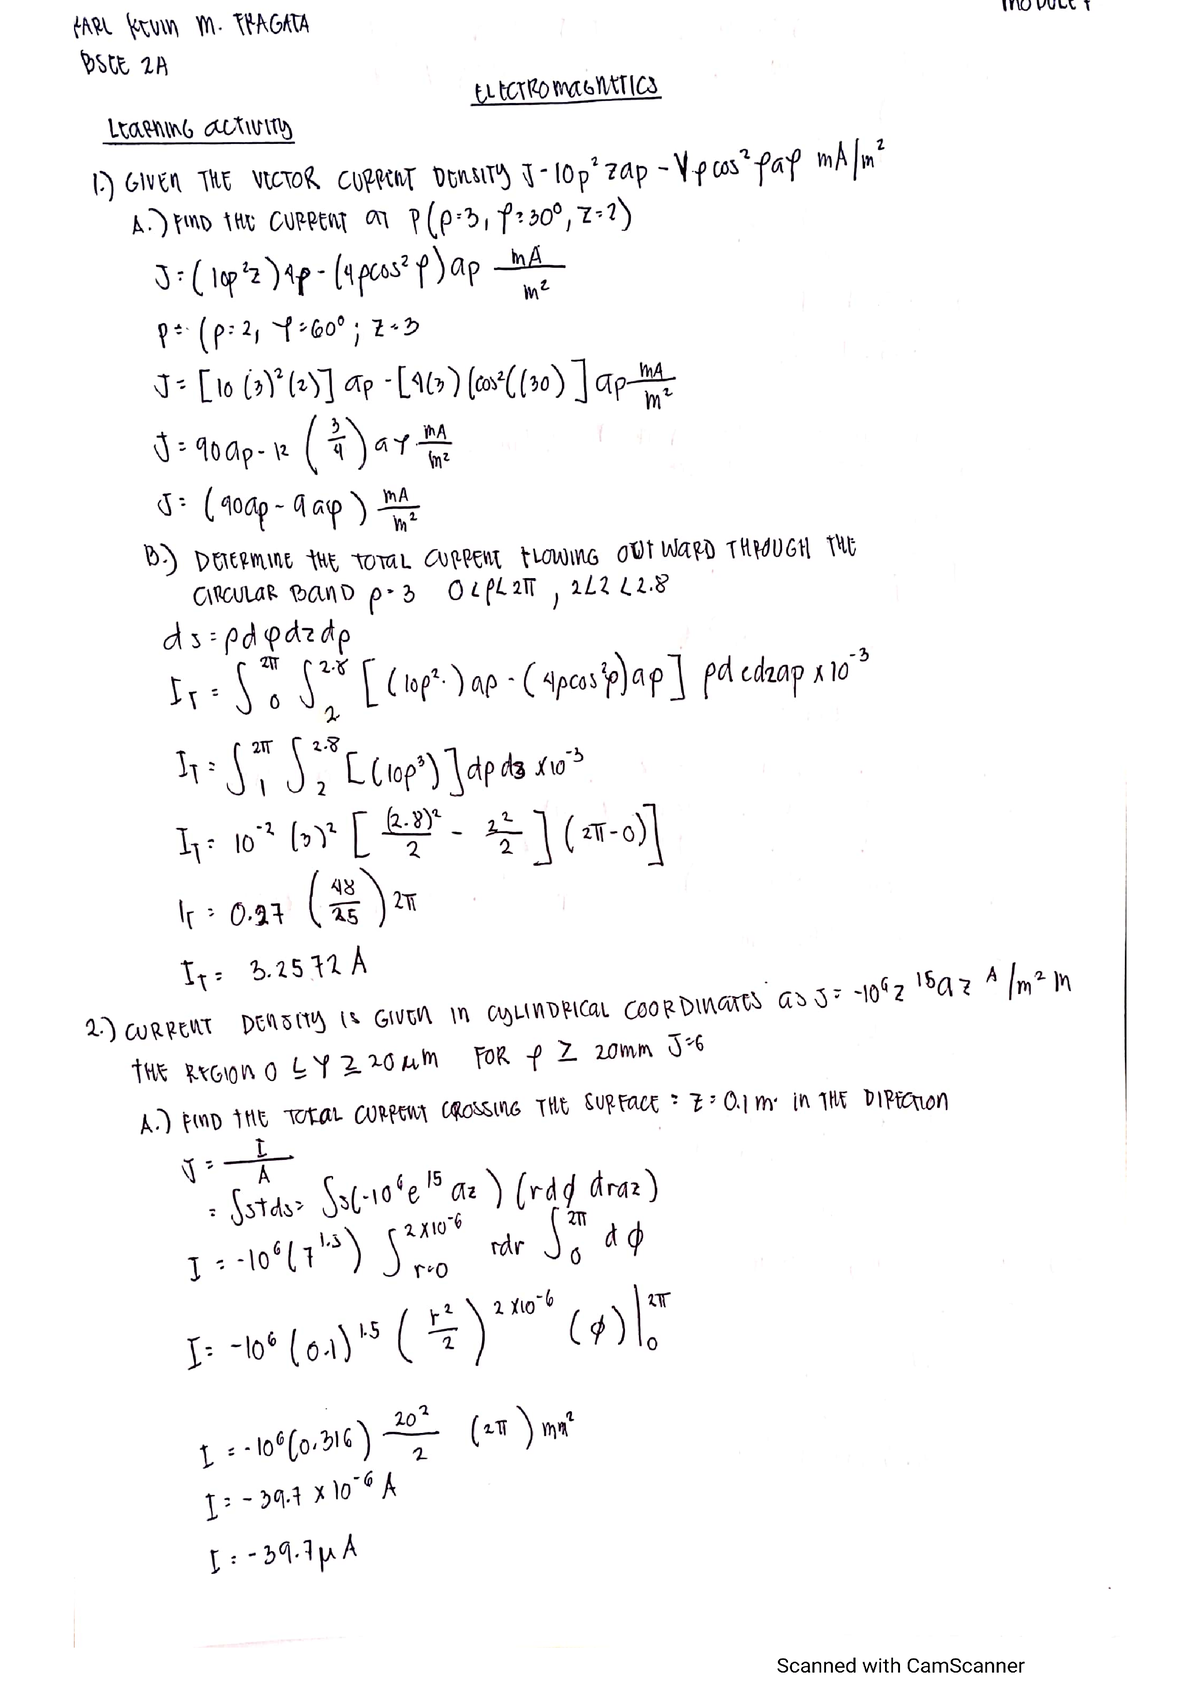 KARL KEVIN M. FRAGATA
MODULE 4
BSCE 2A
ELECTROMAGNETICS
LEARNING ACTIVITY
1.) GIVEN THE VECTOR CURRENT DENSITY J-10ρ²zaρ - 4ρcos²φaφ mA/m²
A.) FIND THE CURRENT AT P(ρ=3, φ=30°, Z=2)
J=(10ρ²z)aρ-(4ρcos²φ)aρ mA/m²
P=(ρ=2, φ=60°; Z=3
J=[10(3)²(2)]aρ-[4(3)(cos²((30)]aρ mA/m²
J=90aρ-12(3/4)aφ mA/m²
J=(90aρ-9aφ) mA/m²
B.) DETERMINE THE TOTAL CURRENT FLOWING OUTWARD THROUGH THE
CIRCULAR BAND ρ=3 0<ρ<2π, 2<2<2.8
ds=ρdφdzdρ
I_T=∫₀^2π ∫₂^2.8 [(10ρ².)aρ-(4ρcos²ρ)aρ] ρdφdzaρ x10⁻³
I_T=∫₁^2π ∫₂^2.8 [(10ρ³)]dρdz x10⁻³
I_T=10⁻²(3)²[(2.8)²/2 - 2²/2](2π-0)]
I_T=0.27(48/25)2π
I_T=3.2572 A
2.) CURRENT DENSITY IS GIVEN IN CYLINDRICAL COORDINATES AS J=-10⁶z^15az A/m² IN
THE REGION 0≤φ≥20μm FOR ρ≥20mm J=6
A.) FIND THE TOTAL CURRENT CROSSING THE SURFACE = Z=0.1m. IN THE DIRECTION
J=I/A
=∫stds=∫s(-10⁶e^15 az)(rdφdraz)
I=-10⁶(7^1.5)∫_r=0^2x10⁻⁶ rdr ∫₀^2π dφ
I=-10⁶(0.1)^1.5(r²/2)^2x10⁻⁶ (φ)|₀^2π
I=-10⁶(0.316) 20²/2 (2π)mm²
I=-39.7x10⁻⁶ A
I=-39.7μA
Scanned with CamScanner